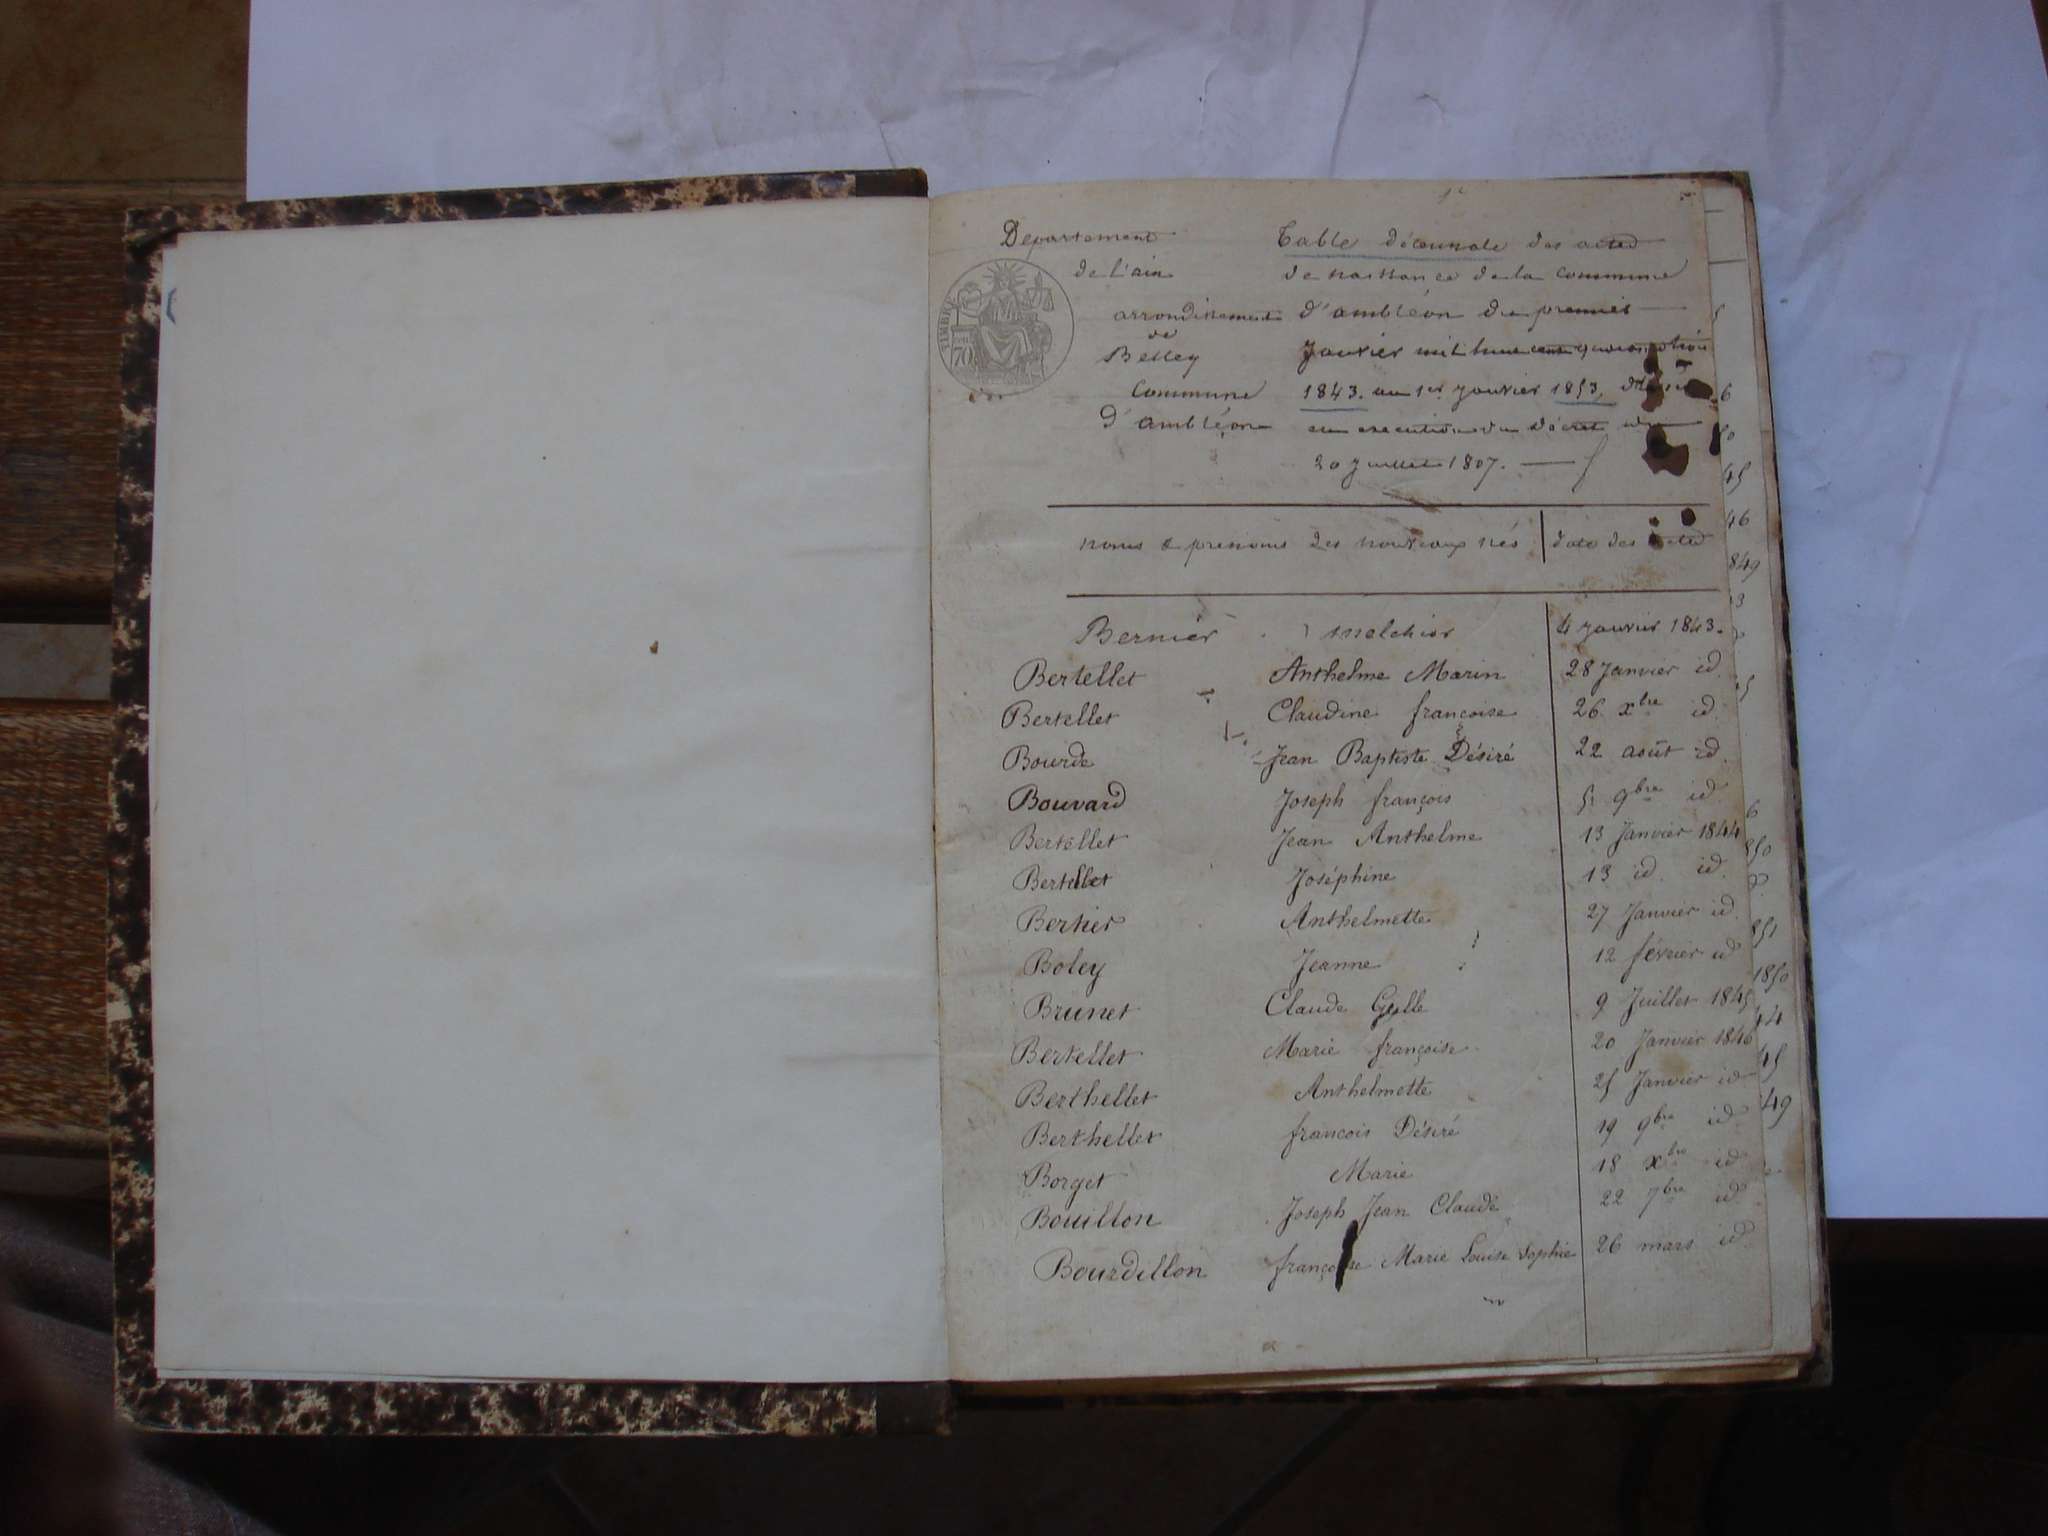 Departement
de l'ain
arrondissement
de
Belley
Commune
d'ambléon
TIMBRE
70
Table décennale des actes
de naissance de la commune
d'ambléon du premier
Janvier mil huit cent quarante trois
1843. au 1er Janvier 1853,
en execution du décret du
20 Juillet 1807.
noms & prenoms des nouveaux nés date des actes
Bernier melchior 4 janvier 1843.
Bertellet Anthelme Marin 28 Janvier id.
Bertellet Claudine françoise 26 xbre id.
Bourde Jean Baptiste Désiré 22 août id.
Bouvard Joseph françois 5 9bre id.
Bertellet Jean Anthelme 13 Janvier 1844
Bertellet Joséphine 13 id. id.
Bertier Anthelmette 27 Janvier id.
Boley Jeanne 12 février id
Brunet Claude 9 Juillet 1845
Bertellet Marie françoise 20 Janvier 1846
Berthellet Anthelmette 25 Janvier id
Berthellet francois Désiré 19 9bre id
Borget Marie 18 xbre id
Bouillon Joseph Jean Claude 22 7bre id
Bourdillon françoise Marie Louise Sophie 26 mars id
6
50
45
46
849
3
6
850
d.
851
1850
44
45
49